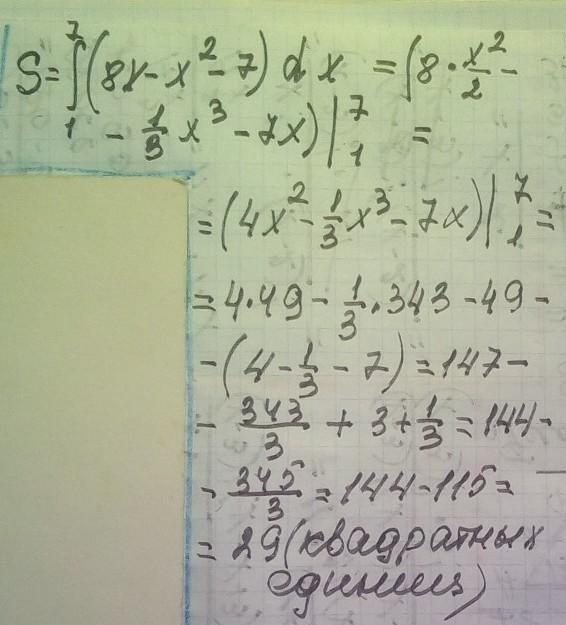 S = ∫₁⁷ (8x - x² - 7) dx = (8 · x²/2 -
- 1/3 x³ - 7x) |₁⁷ =
= (4x² - 1/3 x³ - 7x) |₁⁷ =
= 4·49 - 1/3 · 343 - 49 -
- (4 - 1/3 - 7) = 147 -
- 343/3 + 3 + 1/3 = 144 -
- 345/3 = 144 - 115 =
= 29 (квадратных
единиц)